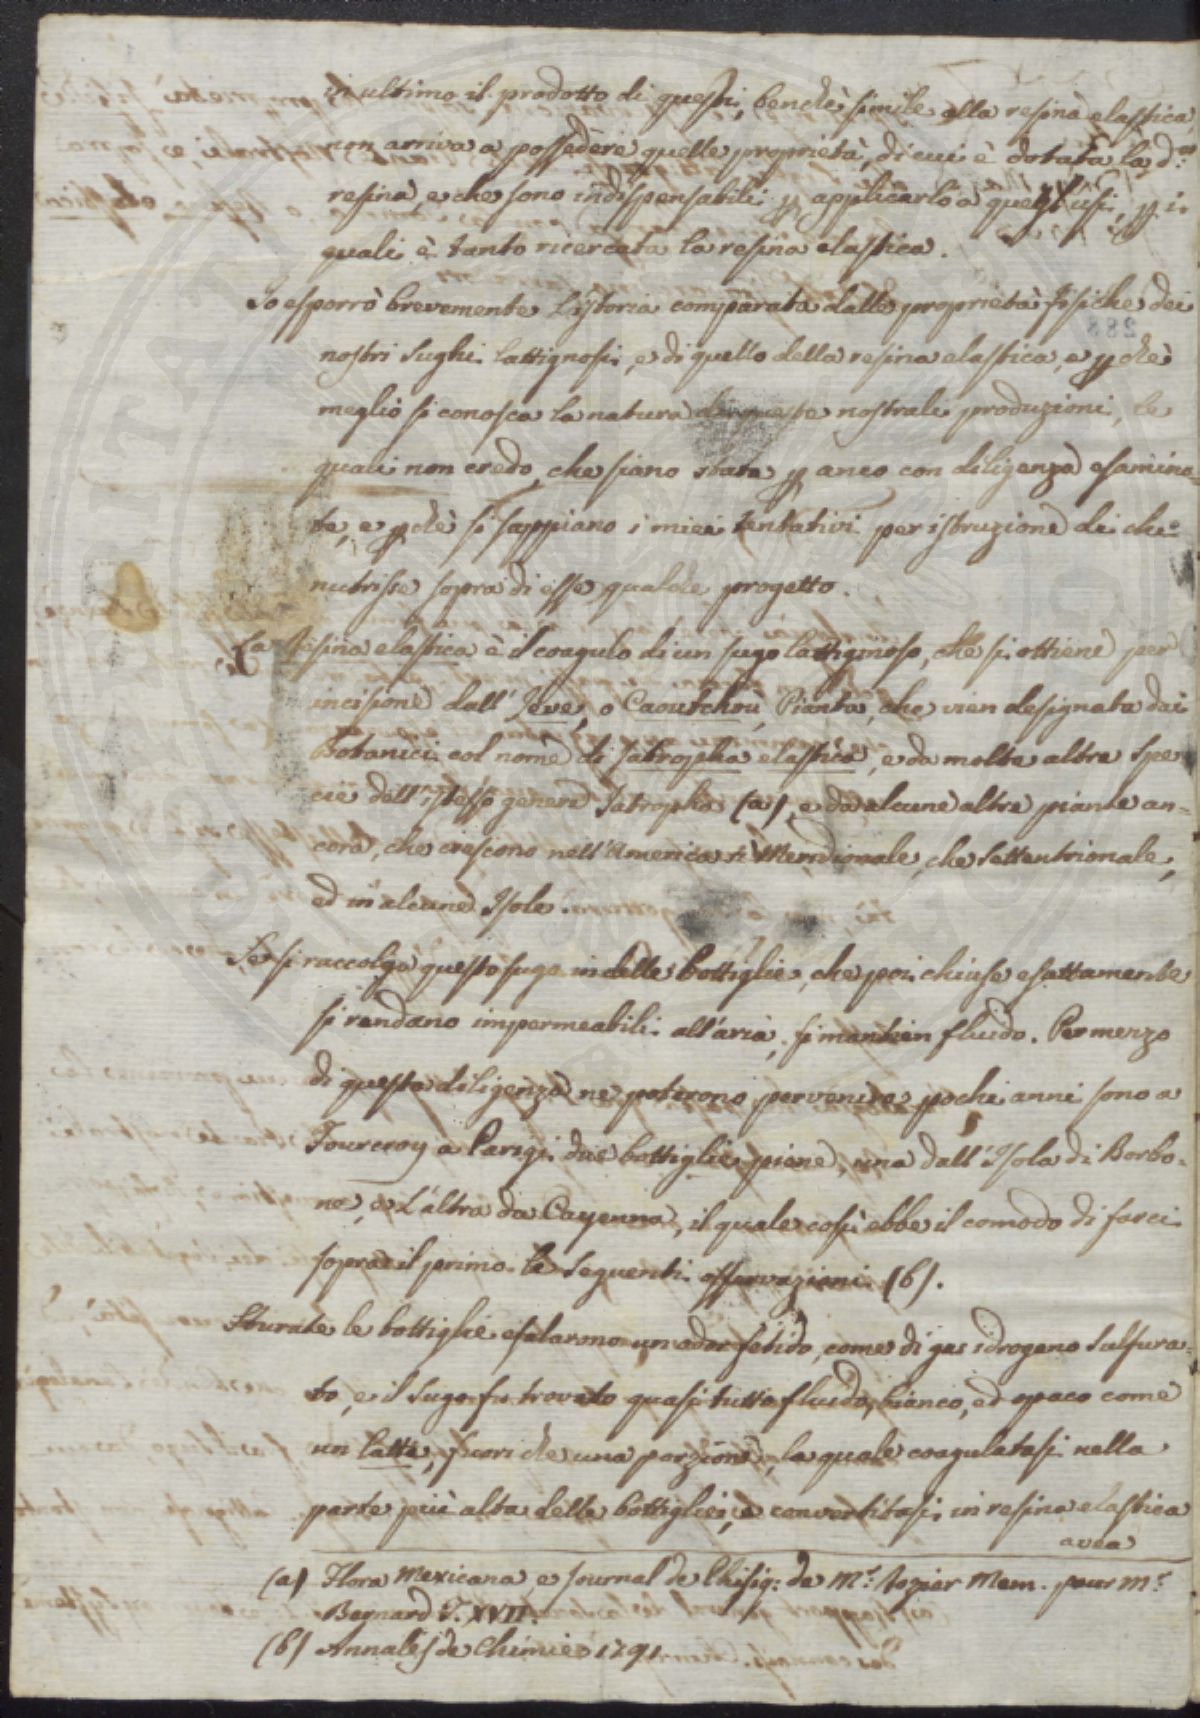 in ultimo il prodotto di questi, benchè simile alla resina elastica,
non arriva a possedere quelle proprietà, di cui è dotata la d.ª
resina, e che sono indispensabili p applicarlo a quegl'usi, p i
quali è tanto ricercata la resina elastica.
Io esporrò brevemente l'istoria comparata delle proprietà fisiche dei
nostri sughi lattiginosi, e di quello della resina elastica, e pchè
meglio si conosca la natura di queste nostrali produzioni, le
quali non credo, che siano state p anco con diligenza esamina=
te, e pchè si sappiano i miei tentativi per istruzione di chi
nutrisse sopra di esse qualche progetto.
La Resina elastica è il coagulo di un sugo lattiginoso, che si ottiene per
incisione dall'Jeve, o Caoutchoù, Pianta, che vien designata dai
Botanici col nome di Jatropha elastica, e da molte altre spe
cie dell'istesso genere Jatropha (a), e da alcune altre piante an=
cora, che crescono nell'America sì Meridionale, che Settentrionale,
ed in alcune Isole.
Se si raccolga questo sugo in delle bottiglie, che poi chiuse esattamente
si rendano impermeabili all'aria, si mantien fluido. Per mezzo
di questa diligenza ne poterono pervenire pochi anni sono a
Fourcroy a Parigi due bottiglie piene, una dall'Isola di Borbo=
ne, e l'altra da Cayenna, il quale così ebbe il comodo di farci
sopra il primo le seguenti osservazioni (b).
Sturate le bottiglie esalarono un odor fetido, come di gas idrogeno sulfura=
to, e il sugo fu trovato quasi tutto fluido, bianco, ed opaco come
un latte, fuori che una porzione, la quale coagulatasi nella
parte più alta delle bottiglie, e convertitasi in resina elastica
avea
(a) Flora Mexicana, e Journal de Phisiq: de M.r Rozier Mem. pour M.r
Bernard T. XVII.
(b) Annales de Chimie 1791
288